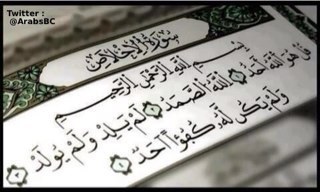 Twitter :
@ArabsBC
سُورَةُ الإِخْلَاصِ
بِسْمِ اللَّهِ الرَّحْمَٰنِ الرَّحِيمِ
قُلْ هُوَ اللَّهُ أَحَدٌ ۝١ اللَّهُ الصَّمَدُ ۝٢ لَمْ يَلِدْ وَلَمْ يُولَدْ ۝٣
وَلَمْ يَكُن لَّهُ كُفُوًا أَحَدٌ ۝٤